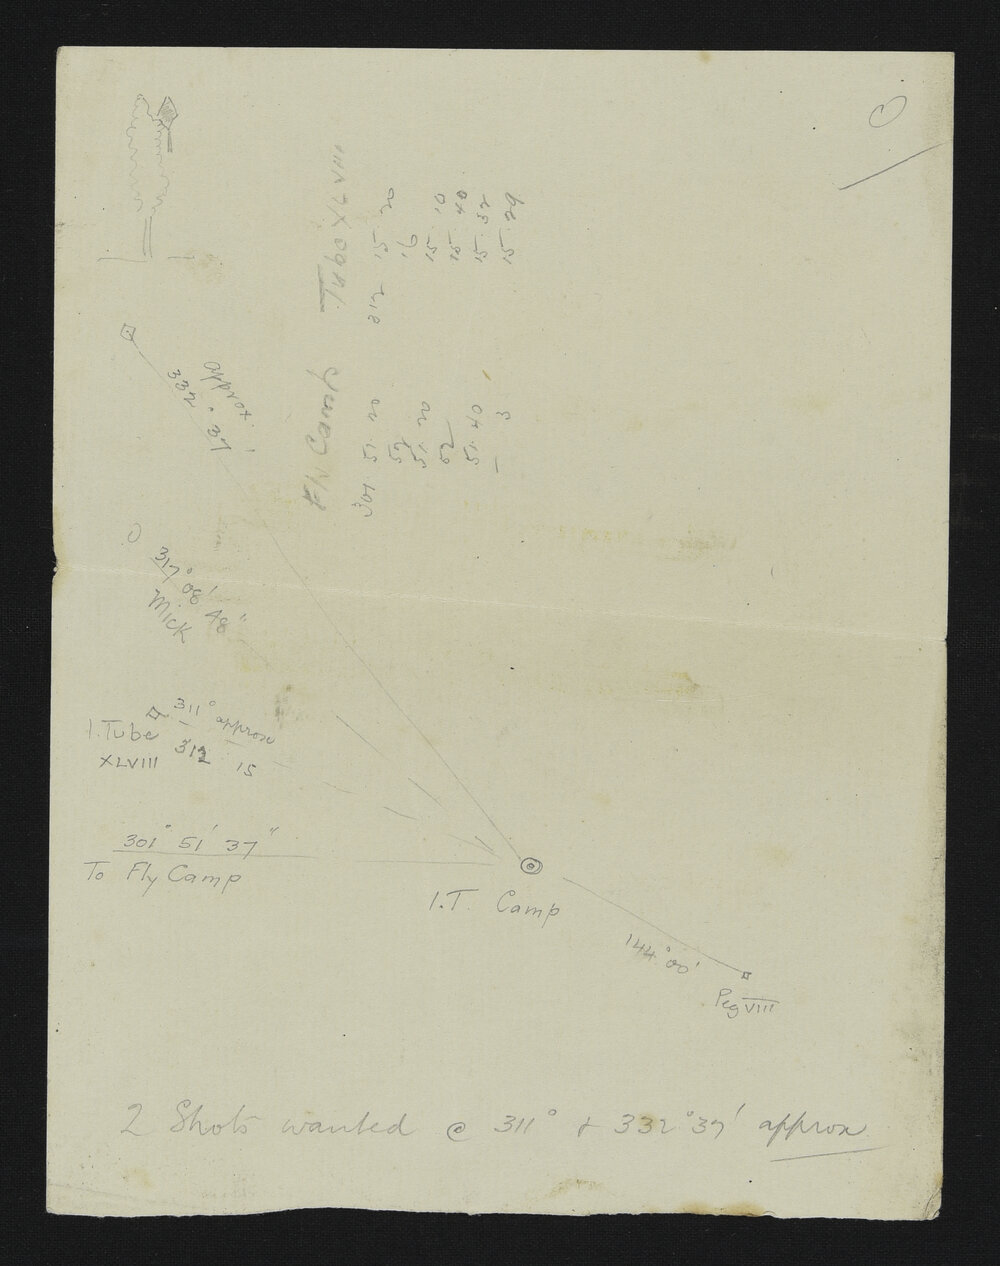 Tube XLVIII
312 15 20
16
15 10
15 40
15 32
15 29
Fly Camp
301 51 20
52
51 20
52
51 40
approx
332° 37'
317° 08' 48"
Mick
311° approx
I. Tube
XLVIII
312 15
301° 51' 37"
To Fly Camp
I.T. Camp
144° 00'
Peg VIII
2 Shots wanted @ 311° & 332° 37' approx